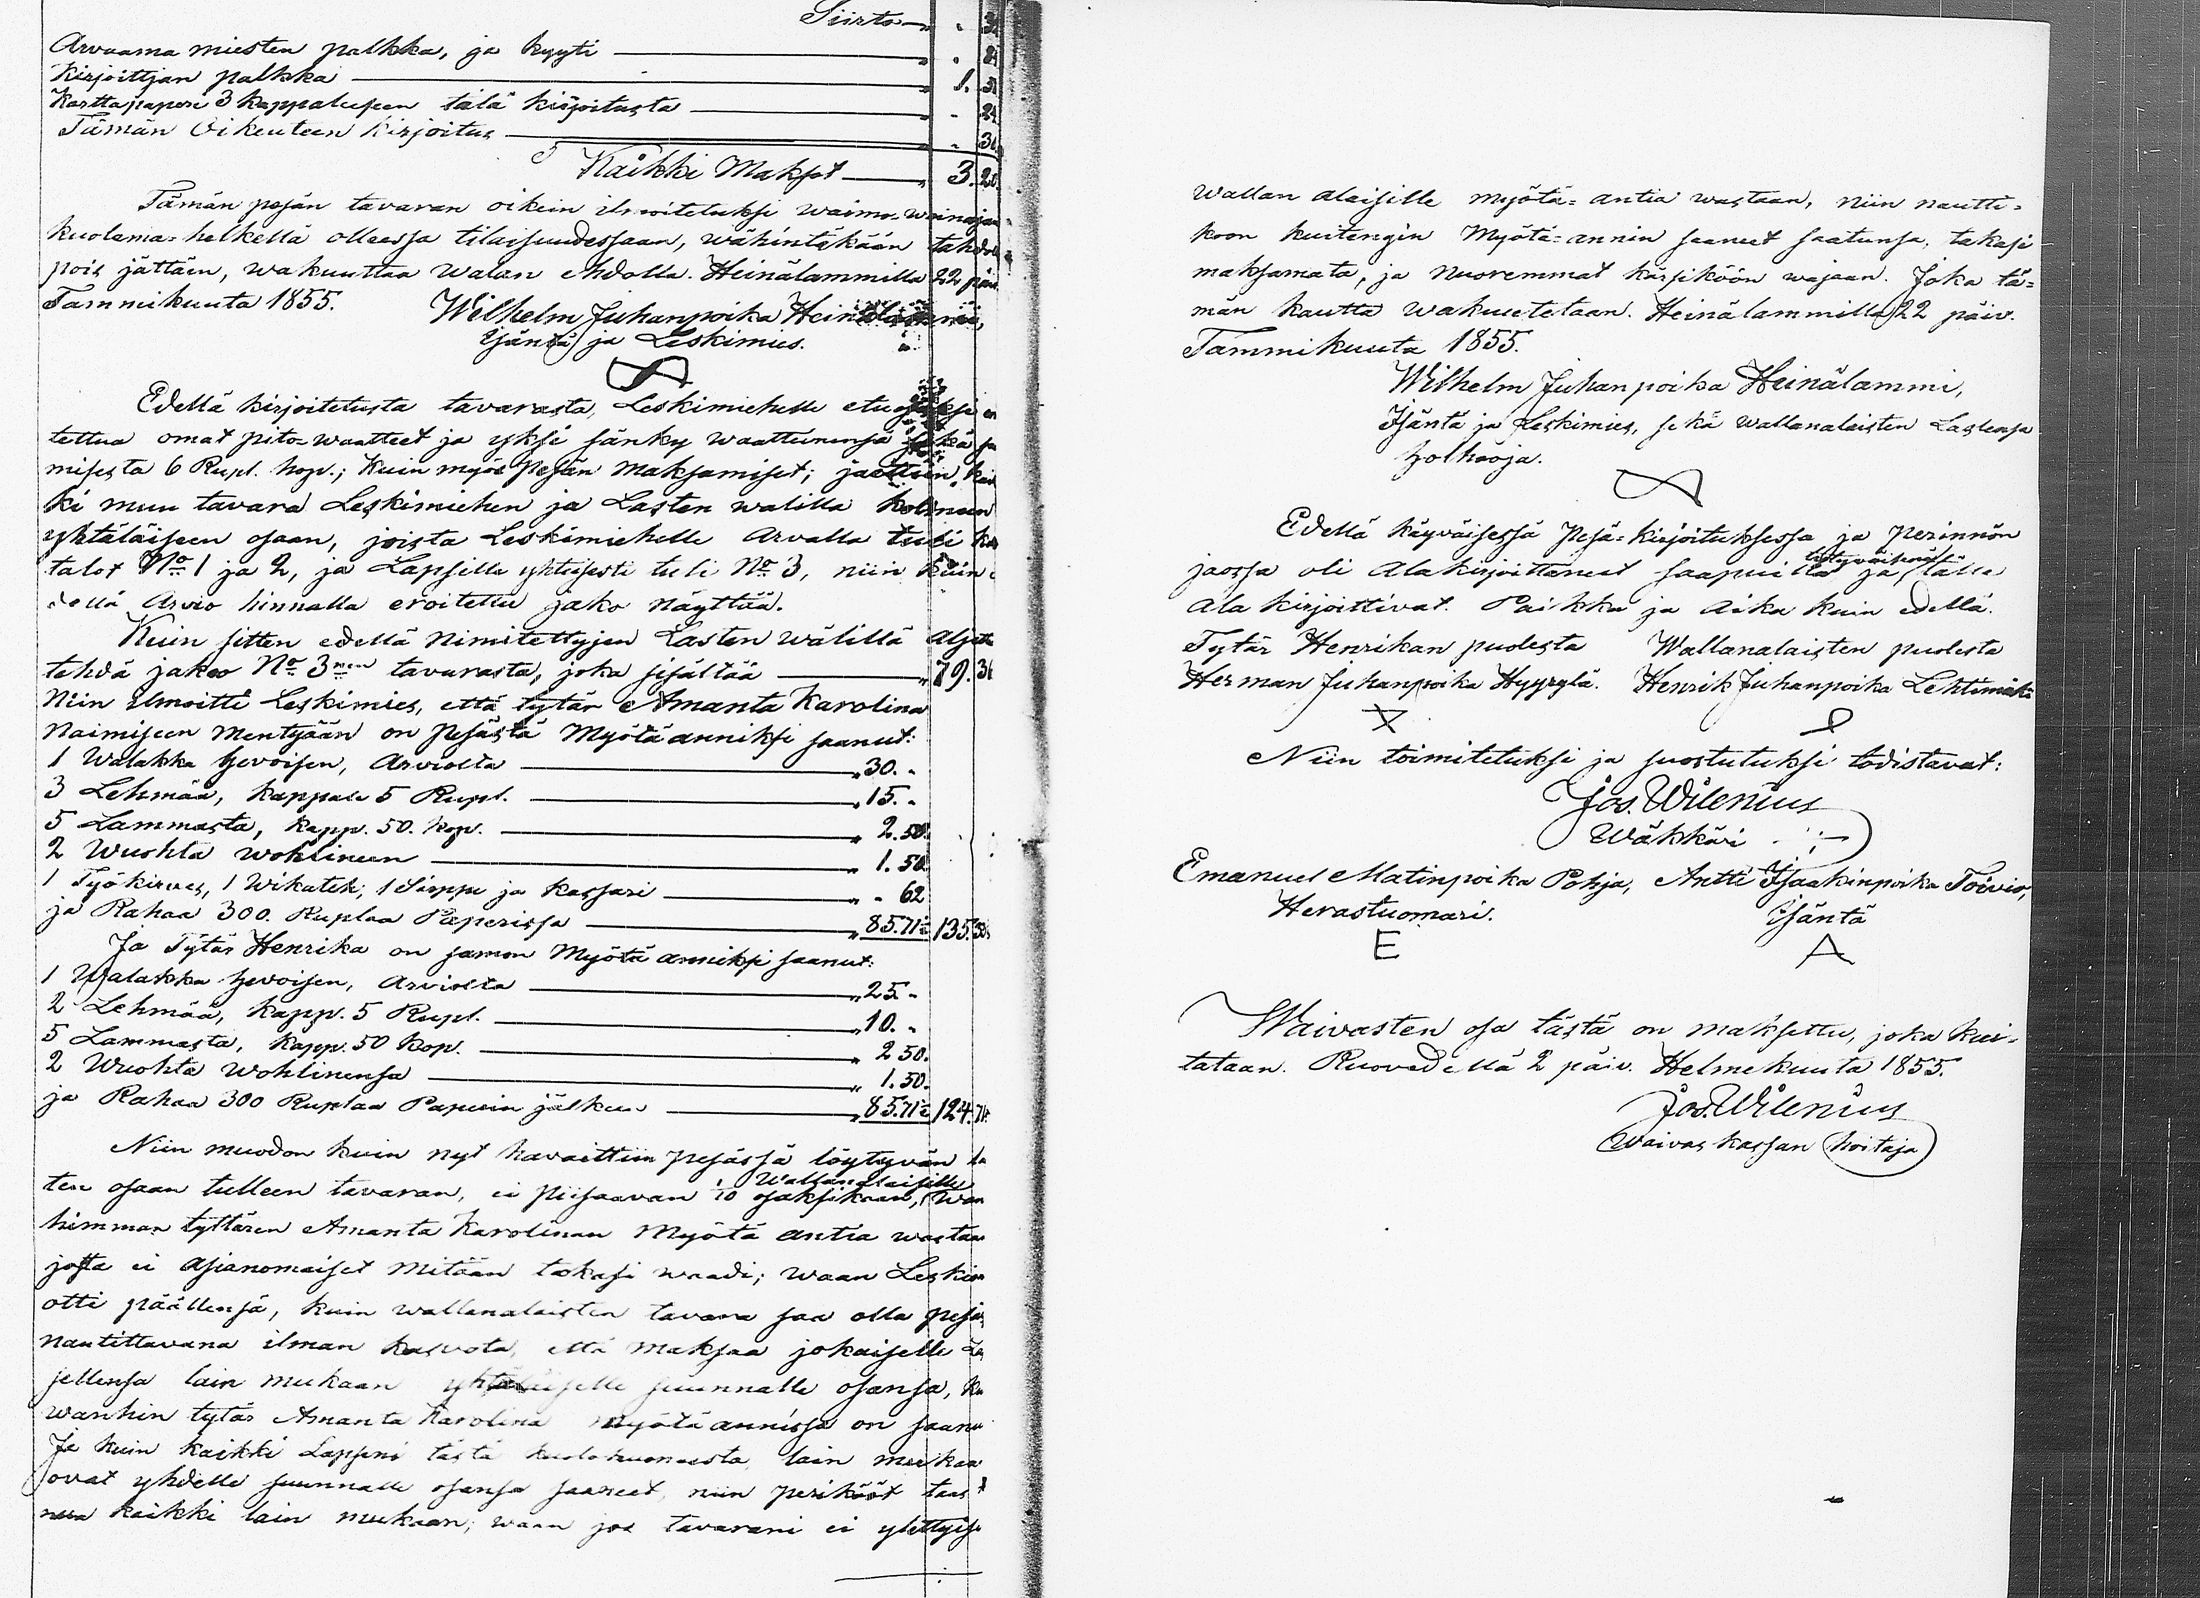 Siirto „ .
Arvaama miesten palkka, ja kyyti „ .
Kirjoittjan palkka „ 1.
Karttapaperi 3 kappaleeseen tälä kirjoitusta „ - 24
Tämän Oikeuteen kirjoitus „ -
Kaikki Maksot „ 3. 20.
Tämän pesän tavaran oikein ilmoitetuksi waimo-wainajan
kuolema-hetkellä olleessa tilaisuudessaan, wähintäkään
pois jättäen, wakuuttaa Walan ehdolla. Heinälammilla 22 päiv.
Tammikuuta 1855. Wilhelm Juhanpoika Heinälammi,
Isäntä ja Leskimies.
Edellä kirjoitetusta tavarasta, Leskimiehelle etuosaksi
tettua omat pito-waatteet ja yksi sänky waatteinensa sekä
misesta 6 Rupl. hop.; kuin myös pesän maksamiset; jaettiin,
ki muu tavara Leskimiehen ja Lasten walilla kolmeen
yhtäläiseen osaan, joista Leskimiehelle Arvalla tuli
talot No 1 ja 2, ja Lapsille yhteisesti tuli No 3, niin kuin
Arvio hinnalla eroitettu jako näyttää.
Kuin sitten edellä nimitettyjen Lasten wälillä
tehdä jakoo No 3men tavarasta, joka sisältää „ 79.
Niin ilmoitti Leskimies, että tytär Amanta Karolina
Naimiseen mentyään on pesästä Myötäanniksi saanut:
1 Walakka hevoisen, Arviolta „ 30. -
3 Lehmää, kappale 5 Rupl. „ 15. -
5 Lammasta, kapp. 50. kop. „ 2.50.
2 Wuohta wohlineen „ 1.50.
1 Työkirves, 1 Wikateh; 1 Sirppi ja kassari „ - 62
ja Rahaa 300. Ruplaa Paperissa „ 85.71½ 135.
Ja Tytär Henrika on samon Myötä anniksi saanut:
1 Walakka hevoisen, Arviolta „ 25. -
2 Lehmää, kapp. 5 Rupl. „ 10. -
5 Lammasta, kapp. 50 kop. „ 2 50.
2 Wuohta wohlinensa „ 1.50.
ja Rahaa 300 Ruplaa Paperin jälkeen „ 85.71½ 124.
Niin muodon kuin nyt havaittiin pesässä löytyvän
ten osaan tulleen tavaran, ei piisaavan 1/10 osaksikaan, Wallanalaisille
himman tyttären Amanta Karolinan Myötä antia wastaan
josta ei asianomaiset mitään takasi waadi; waan
otti päällensä, kuin wallanalaisten tavara saa olla
nautittavana ilman kasvota, että maksaa jokaiselle
sellensa lain mukaan yhtäläiselle suunnalle osansa,
wanhin tytär Amanta Karolina myötäannissa on
Ja kuin kaikki Lapseni tästä lain
ovat yhdelle suunnalle osansa saaneet, niin periköät
kaikki lain mukaan; waan jos tavarani ei
wallan alaisille myötä-antia wastaan, niin nautti-
koon kuitengin Myötä-annin saaneet saatunsa, takasi
maksamata, ja nuoremmat kärsiköön wajaan. Joka tä-
män kautta wakuutetaan. Heinälammilla 22 päiv.
Tammikuuta 1855.
Wilhelm Juhanpoika Heinälammi,
Isäntä ja Leskimies, sekä wallanalaisten Lastensa
holhooja.
Edellä käyväisessä Pesä-kirjoituksessa ja perinnön
jaossa oli Alakirjoittaneet saapuilla ja tytyväisenä tälle
ala kirjoittivat. Paikka ja aika kuin edellä.
Tytär Henrikan puolesta Wallanalaisten puolesta
Herman Juhanpoika Hyyrylä. Henrik Juhanpoika Lehtimäki
Niin toimitetuksi ja suostutuksi todistavat:
Jos. Wilenius
Wäkkäri
Emanuel Matinpoika Pohja, Antti Isaakinpoika Toivio,
Herastuomari. Isäntä
E A
Waivasten osa tästä on maksettu, joka kui-
tataan. Ruovedellä 2 päiv. Helmekuuta 1855.
Jos. Wilenius
Waivas kassan hoitaja